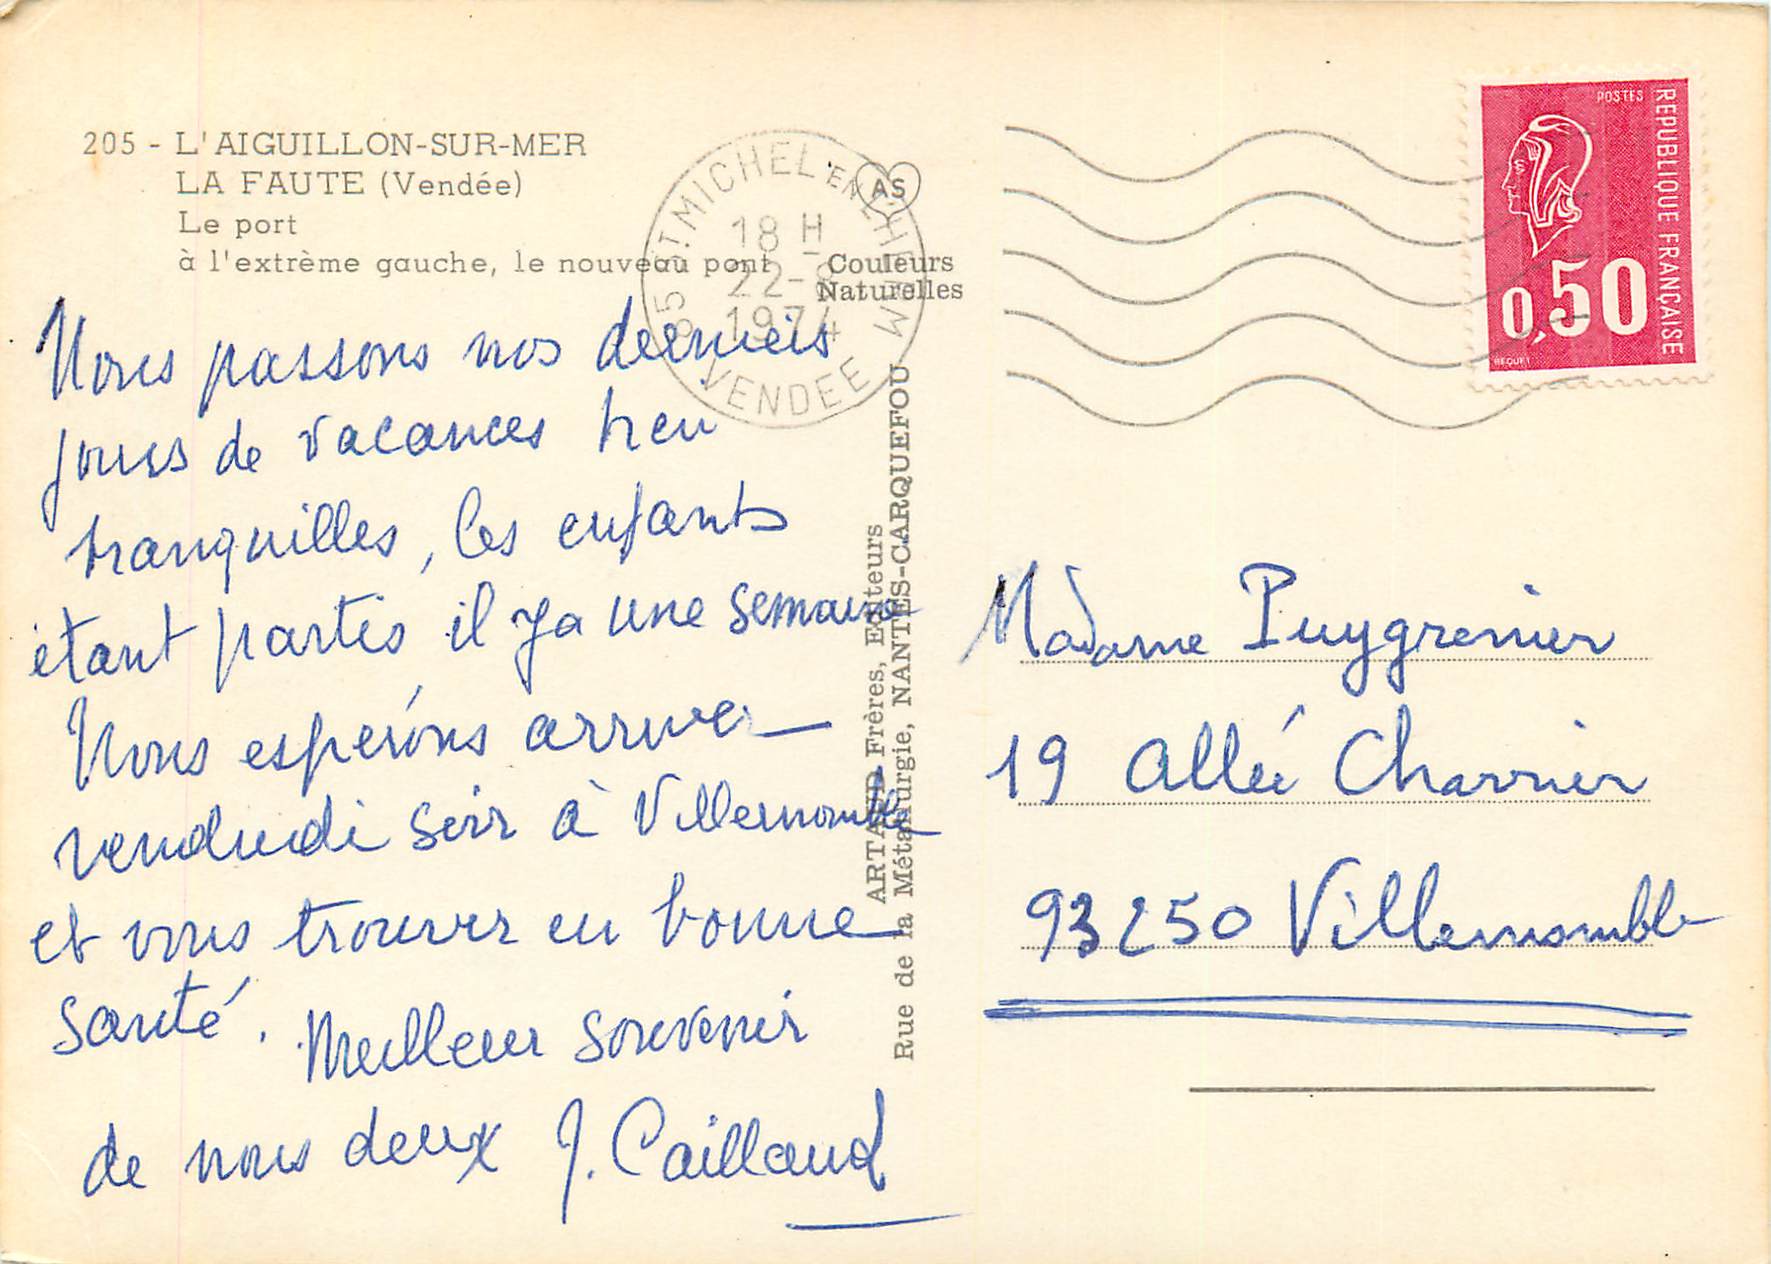 205 - L'AIGUILLON-SUR-MER
LA FAUTE (Vendée)
Le port
à l'extrème gauche, le nouveau pont
AS
Couleurs
Naturelles
85 ST MICHEL EN L'HERM
18 H
22-8
1974
VENDEE
POSTES
REPUBLIQUE FRANÇAISE
0,50
BEQUET
Nous passons nos derniers
jours de vacances bien
tranquilles, les enfants
étant partis il y a une semaine
Nous espérons arriver
vendredi soir à Villemomble
et vous trouver en bonne
santé. Meilleur souvenir
de nous deux J. Caillaud
ARTAUD Frères, Editeurs
Rue de la Métallurgie, NANTES-CARQUEFOU
Madame Puygrenier
19 Allée Charrier
93250 Villemomble